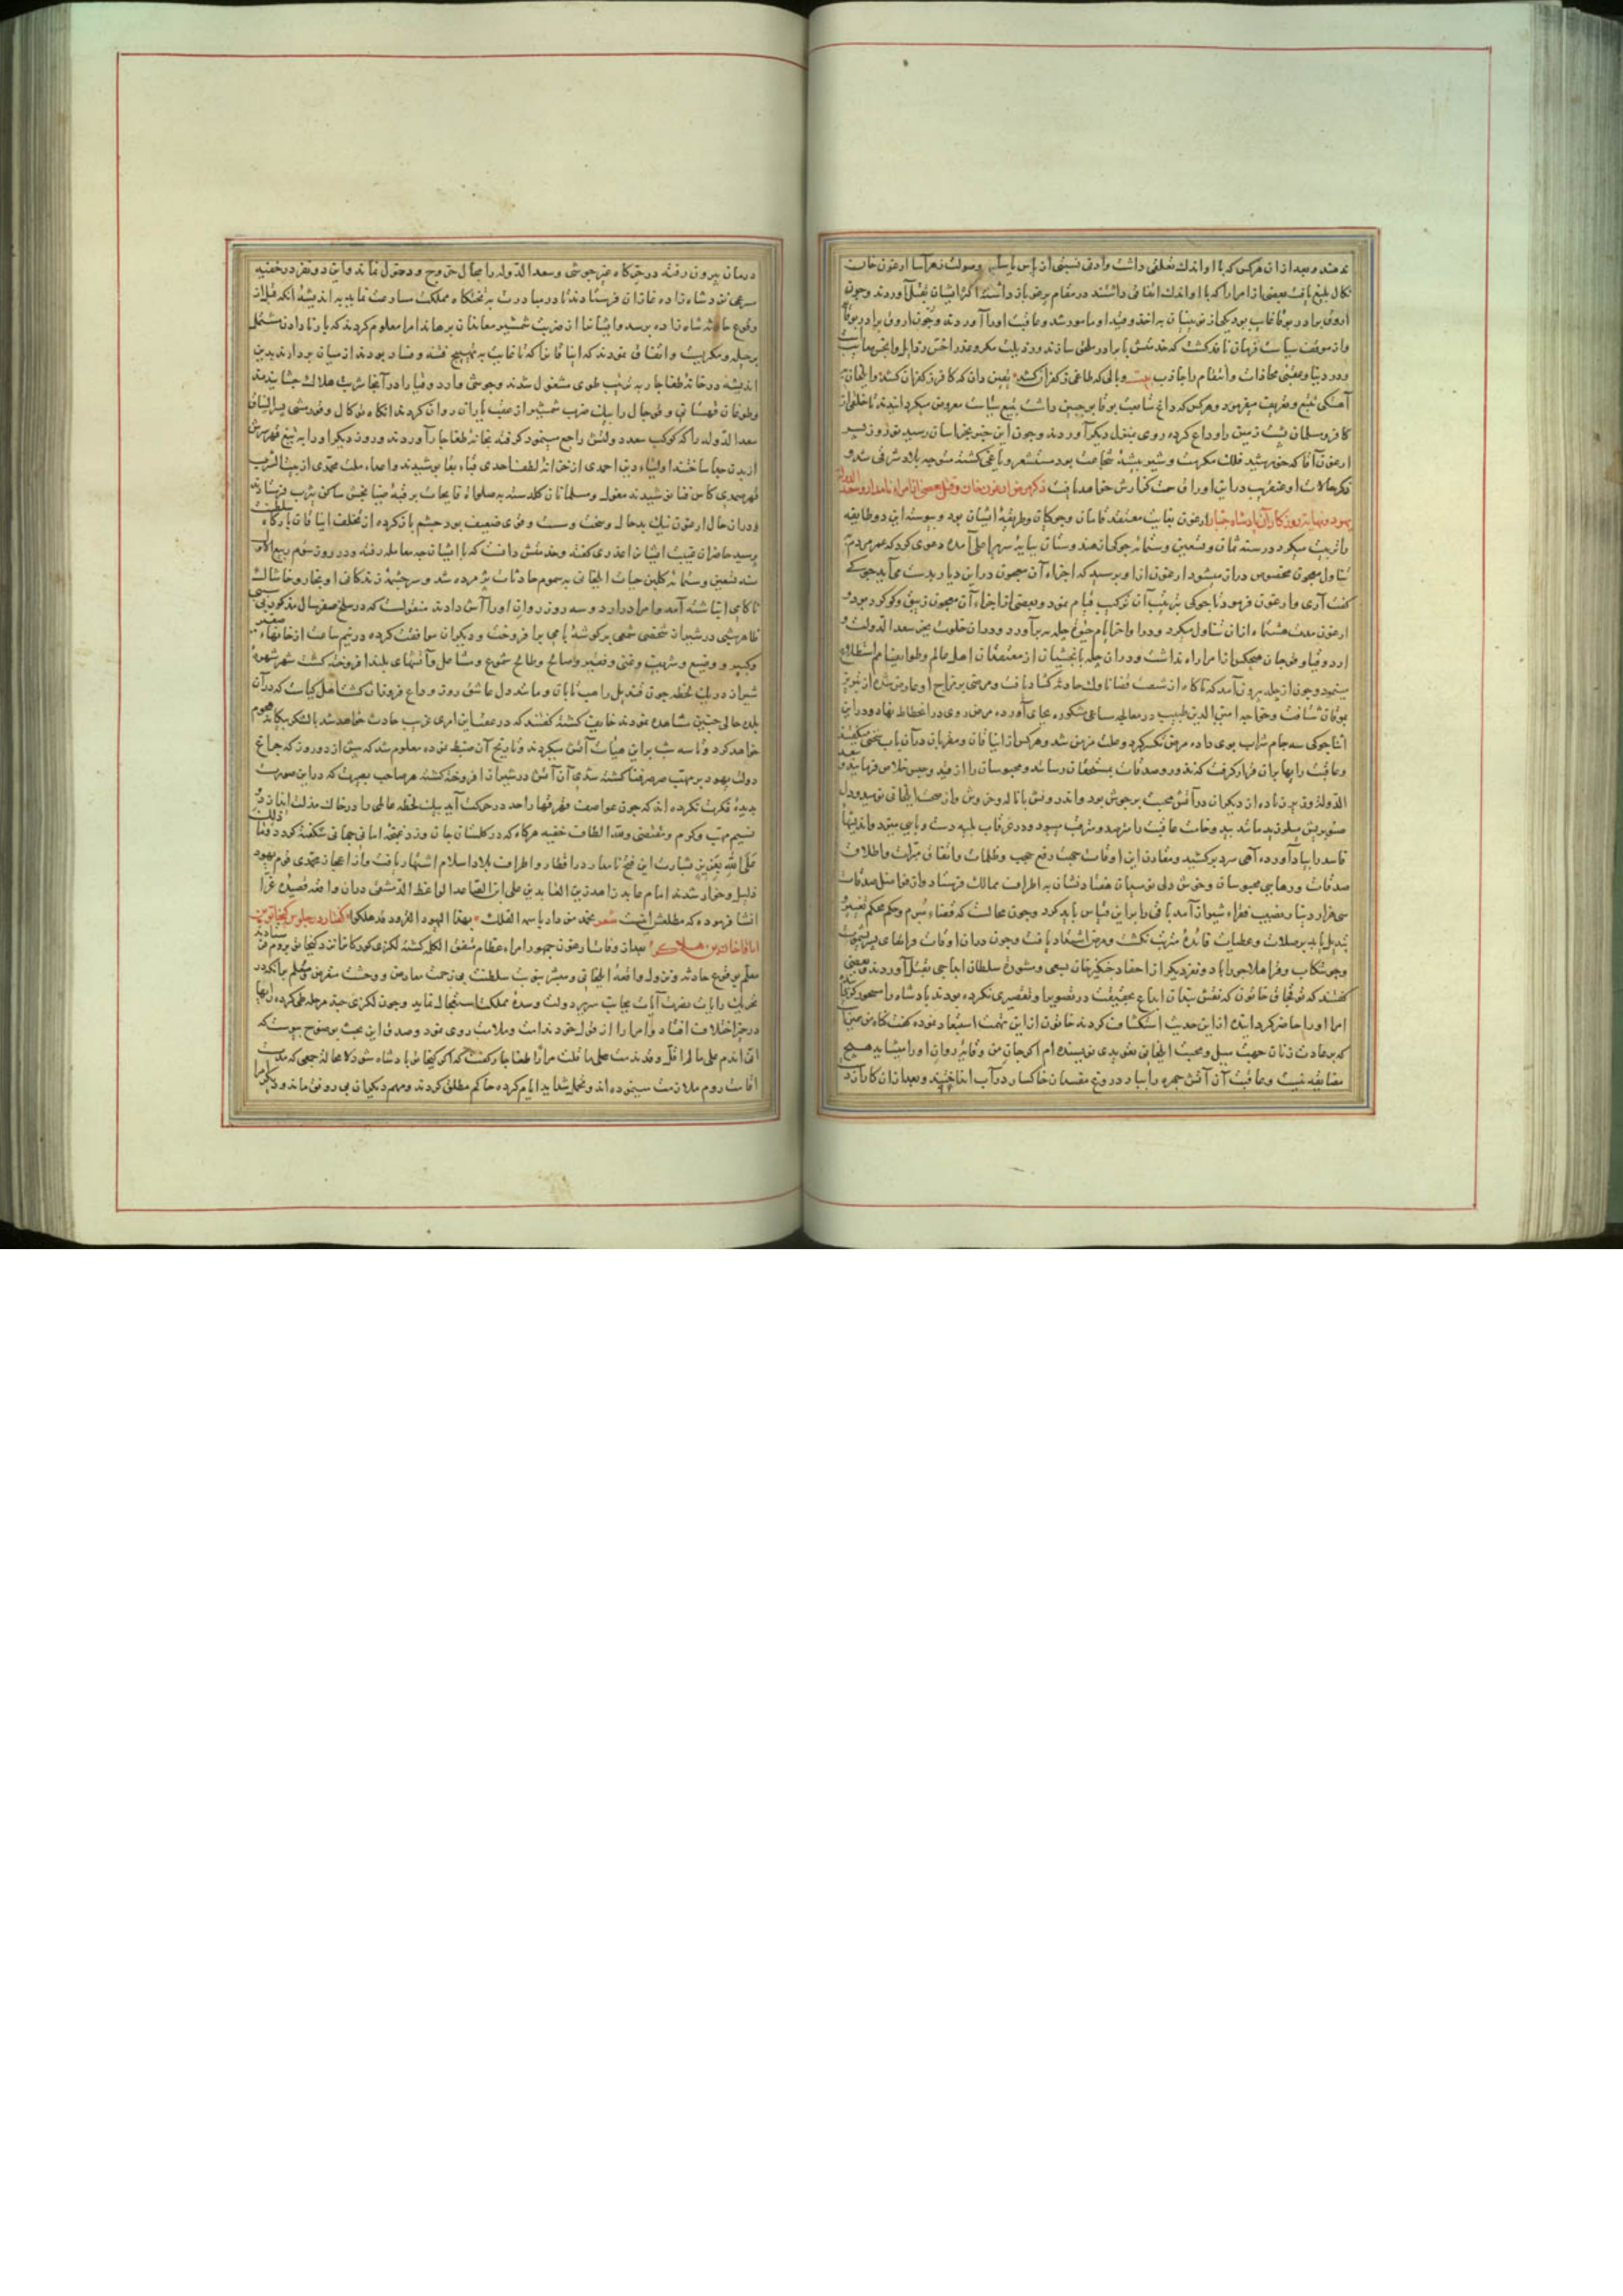 ندهند و بعد از آن هر کس که با او اندک تعلقی داشت وادنی نسبتی از باس وصولت ارغون خان
نکال بلیغ یافت بعضی از امرا را که با او اندک اتفاقی داشتند در مقام یرغو باز داشته اکثر ایشان بقتل آوردند و چون
اروق برادر بوقا غایب بود یکی از نوینان به اخذ و قید او مامور شد و عاقبت او را آوردند و چون اروق برادر بوقا
واز موقف سیاست فرمان نافذ گشت که خدمتش با برادر ملحق سازند
ودر دنیا و عقبی مجازات وانتقام را جاذب بیت وبالی که طاغی ز کفران کشد یقین دان که کافر ز کفران کشد وایلخان به
و هر کس که داغ شامت بوقا بر جبین داشت بتیغ سیاست میگردانیدند تا خلقی از
کافر و مسلمان پشت زمین را وداع کرده روی بمنزل دیگر آوردند و چون این خبر بخراسان رسید نوروز پسر
ارغون آقا که خورشید فلک مکرمت و شیر بیشه شجاعت بود مستشعر و یاغی گشته متوجه بلاد شرقی شد و
ذکر حالات او عنقریب در این اوراق سمت گذارش خواهد یافت ذکر مرض ارغون خان و قتل بعضی از امراء نامدار و سعد الدوله
یهود و نهایت روزگار آن پادشاه جبار ارغون بغایت معتقد قامان و جوکیان و طریقه ایشان بود و پیوسته این دو طایفه
را تربیت میکرد در سنه ثمان و تسعین و ستمائه جوکی از هندوستان بپایه سریر اعلی آمده دعوی کرد که عمر مردم
بتناول معجون مخصوص دراز میشود ارغون از او پرسید که اجزاء آن معجون در این دیار بدست می آید جوکی
گفت آری و ارغون فرمود تا جوکی بترتیب آن ترکیب قیام نمود و بعضی از اجزاء آن معجون زیبق و کوکرد بود و
ارغون مدت هشت ماه از آن تناول میکرد و در اواخر ایام جوع چله بر آورد و در آن خلوت بجز سعد الدوله و
اردو قیا و قوجان هیچکس از امرا راه نداشت و در آن چله با بخشیان از معتقدان اهل عالم و طوایف امم استطلاع
مینمود و چون از چله بیرون آمد که ناگاه از شست قضا ناوک حادثه گشاد یافت و مرضی بر مزاج او عارض شده از تبریز
بموغان شتافت و خواجه امین الدین طبیب در معالجه ساعی مشکوره بجای آورده مرض روی در انحطاط نهاد و در این
اثنا جوکی سه جام شراب بوی داده مرض نکس کرد و علت مزمن شد و هر کس از ایناقان و مقربان در آن باب سخنی میگفتند
وعاقبت رایها بر آن قرار گرفت که نذور و صدقات بمستحقان رسانند و محبوسان را از قید و حبس خلاص فرمایند و سعد
الدوله زودتر و زیاده از دیگران در آتش محبت بر جوش بود و اندرونش با ناله و خروش واز صحت ایلخانی نومید و دل
فاسد را بیاد آورده آهی سرد بر کشید و مقارن این اوقات جهت دفع حجب و ظلمات وانفاق مبرات واطلاق
صدقات و رهایی محبوسان و خوش دلی نومیدان هفتاد نشان به اطراف ممالک فرستاد واز فواضل صدقات
سی هزار دینار نصیب فقراء شیراز آمد باقی را بر این قیاس باید کرد و چون محالست که قضاء مبرم و حکم محکم تغییر و
تبدیل یابد بر صلات و عطیات فائده مترتب نگشت و مرض اشتداد یافت و چون در آن اوقات
و جوشکاب و قرا هلاجو را با دو نفر دیگر از احفاد چنگیز خان بسعی و مشوره سلطان ایداجی بقتل آوردند و بعضی
گفتند که توقجاق خاتون
امرا او را حاضر گردانیده از این حدیث استکشاف کردند خاتون از این تهمت استبعاد نموده گفت گاه من
که بر عادت زنان جهت میل و محبت ایلخان تعویذی نویسنده ام اگر جان من وقایه روان او را میشاید هیچ
مضایقه نیست و عاقبت آن آتش چهره را بباد دروغ مفسدان خاکسار در آب انداختند و بعد از آن کار از
درمان بیرون رفته در خرگاه جز جوشی و سعد الدوله را مجال خروج و دخول نماند و این دو نفر در خفیه
سرعی نزد شاهزاده غازان فرستادند تا در مبادرت به تختگاه مملکت مسارعت نماید به اندیشه آنکه قبل از
وقوع حادثه شاهزاده برسد وایشان را از ضربت شمشیر معاندان برهاند امرا معلوم کردند که یارنا دادن مشتمل
بر حیله و مکریست و اتفاق نمودند که ایناقان را که تا غایت به تهییج فتنه و فساد بودند از میان بردارند بدین
اندیشه در خانه طغاجار به ترتیب طوی مشغول شدند و جوشی و اردو قیا را در آنجا شربت هلاک چشانیدند
وطوغان قهستانی و قوجان را بیک ضرب شمشیر از عقب یاران روان کردند
سعد الدوله را که کوکب سعد دولتش راجع مینمود گرفته بخانه طغاجار آوردند و روز دیگر او را به تیغ قهر سرش
از بدن جدا ساختند اولیاء دین احمدی از خزانه لطف احدی قباء بقا پوشیدند و اعداء ملت محمدی از
قهر سرمدی کاس فنا نوشیدند مغول و مسلمانان
ودر آن حال ارغون نیک بدحال و سخت و سست و قوی ضعیف بود چشم باز کرده از تخلف ایناقان بارگاه سلطنت
پرسید حاضران غیبت ایشان را عذری گفته و خدمتش دانست که با ایشان چه معامله رفته و در روز سوم ربیع الاول
سنه تسعین و ستمائه گلبن حیات ایلخانی به سموم حادثات پژمرده شد و سرچشمه زندگانی او بخار و خاشاک
ناکامی انباشته آمد وامرا در اردو سه روز روان او را آش دادند منقولست که در سلخ صفر سال مذکور بی سببی
ظاهر شبی در شیراز شخصی شمعی بر گوشه بامی برافروخت و دیگران موافقت کرده در نیم ساعت از خانهاء صغیر
و کبیر و وضیع و شریف و غنی و فقیر و صالح و طالح شموع و مشاعل و آتشهای بلند افروخته گشت شهر مشهور
شیراز در یک لحظه چون قندیل راهب تابان و مانند دل عاشق روز وداع فروزان گشت اهل کیاست که در آن
بلده حالی چنین مشاهده نمودند خایف گشته گفتند که در عقب این امری غریب حادث خواهد شد یا لشکر بیگانه هجوم
خواهد کرد و تا سه شب بر این هیأت آتش میکردند و تاریخ آن ضبط نموده معلوم شد که پیش از دو روز که چراغ
دولت یهود بر مهب صرصر فنا کشته شدی آن آتش در شیراز افروخته گشته هر صاحب بصیرت که در این صورت
بدیده فکرت نگرد داند که چون عواصف قهر قهار واحد در حرکت آید بیک لحظه عالمی را در خاک مذلت اندازد و
نسیم مهب و کرم و مقتضی وفد الطاف خفیه هرگاه که در گلستان جان وزد غنچه امانی جهانی شکفته گردد و ذلک
علی الله بعزیز بشارت این فتح نامدار در اقطار و اطراف بلاد اسلام اشتهار یافت و از اعجاز محمدی قوم یهود
ذلیل و خوار شدند امام عابد زاهد زین العابدین علی ابو الفضایل الواعظ الدمشقی در آن واقعه قصیده غرا
انشا فرموده که مطلعش اینست شعر نحمد من دار باسمه الفلک بهذا الیهود القرود قد هلکوا گفتار در جلوس کیخاتو بن
اباقا خان بن هلاکو بعد از وفات ارغون جمهور امراء عظام متفق الکلمه گشته لکزی کورکان را نزد کیخاتو بروم فرستادند
معلم بوقوع حادثه و نزول واقعه ایلخانی و مبشر بنوبت سلطنت بی زحمت معارض و وحشت
تحریک رایات نصرت آیات بجانب سریر دولت و سده مملکت استعجال نماید و چون لکزی چند مرحله طی کرده رایها
در حیز اختلاف افتاد وامرا را از قول خود ندامت و ملامت روی نمود و صدق این بحث بوضوح پیوست که
انی اندم علی ما لم اقل و قد ندمت علی ما قلت مرارا طغاجار گفت که اگر کیخاتو پادشاه شود لا محاله جمعی که مدت
اقامت روم ملازمت مینموده اند و تحمل شداید ایام کرده حاکم مطلق گردند و مهم دیگران بی رونق ماند و دیگر امرا